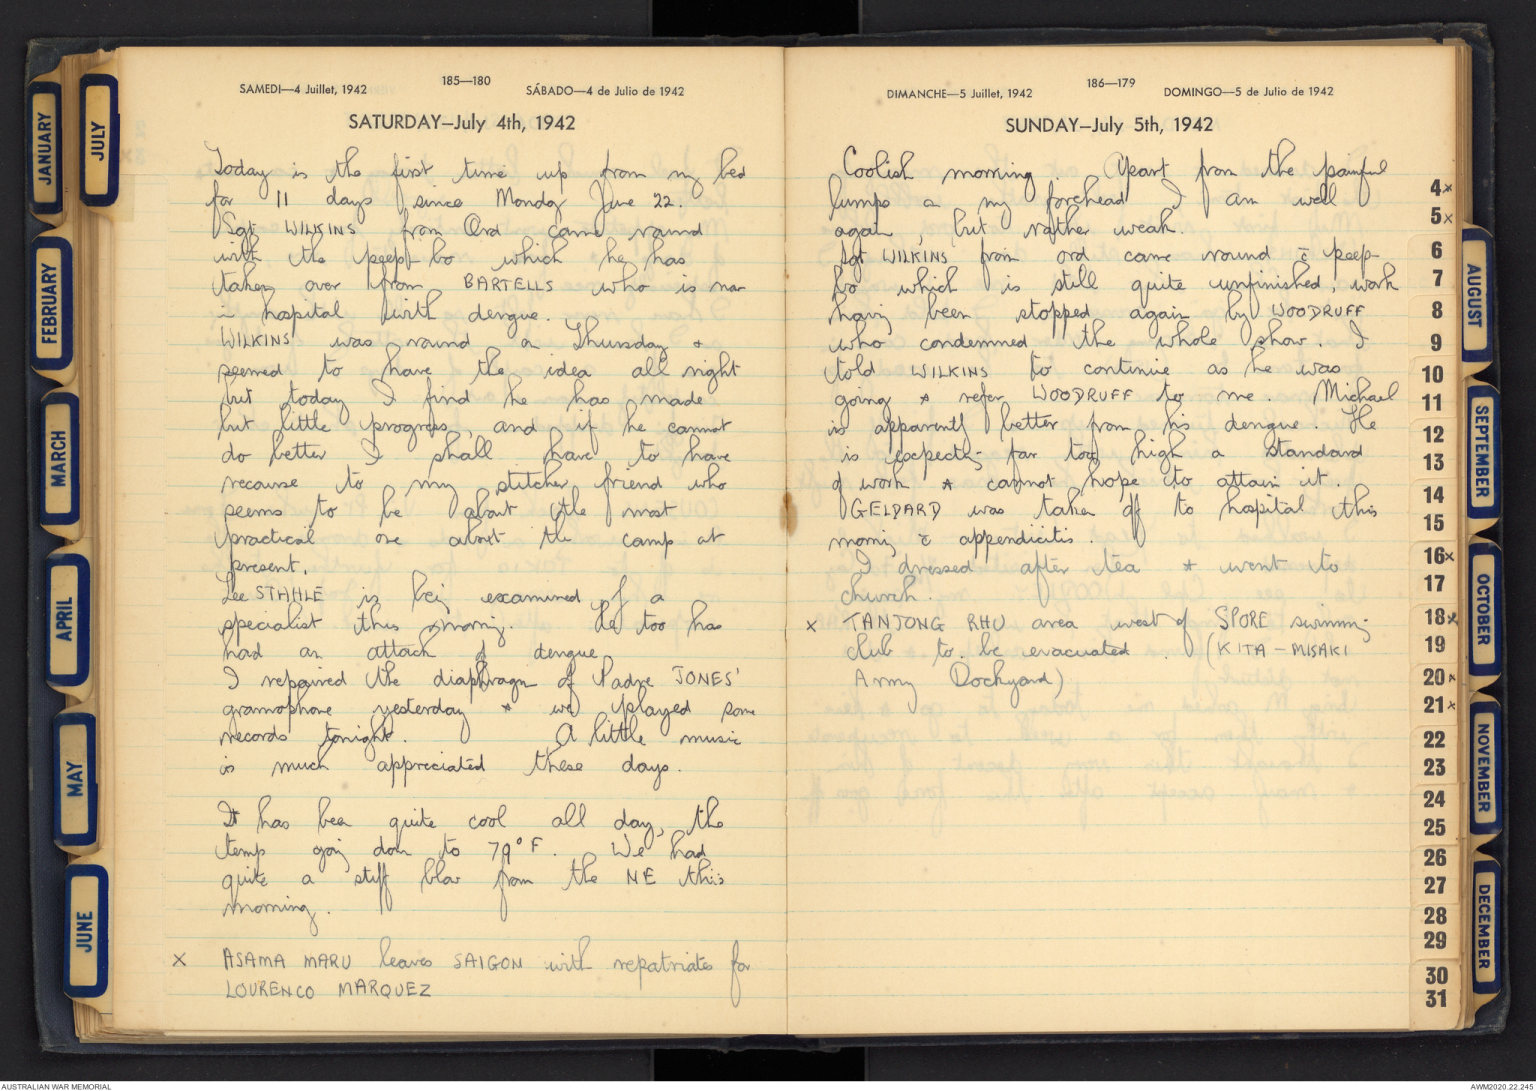 SAMEDI—4 Juillet, 1942
185—180
SÁBADO—4 de Julio de 1942
SATURDAY—July 4th, 1942
Today is the first time up from my bed
for 11 days since Monday June 22.
Sgt WILKINS from Ord came round
with the peep bo which he has
taken over from BARTELLS who is now
in hospital with dengue.
WILKINS was round on Thursday &
seemed to have the idea all right
but today I find he has made
but little progress, and if he cannot
do better I shall have to have
recourse to my stitcher friend who
seems to be about the most
practical one about the camp at
present.
Lee STAHLE is being examined by a
specialist this morning. He too has
had an attack of dengue
I repaired the diaphragm of Padre JONES'
gramophone yesterday & we played some
records tonight. A little music
is much appreciated these days.
It has been quite cool all day, the
temp going down to 79°F. We had
quite a stiff blow from the NE this
morning.
x ASAMA MARU leaves SAIGON with repatriates for
LOURENCO MARQUEZ
DIMANCHE—5 Juillet, 1942
186—179
DOMINGO—5 de Julio de 1942
SUNDAY—July 5th, 1942
Coolish morning. Apart from the painful
lumps on my forehead I am well
again, but rather weak.
Sgt WILKINS from ord came round c̄ peep
bo which is still quite unfinished, work
having been stopped again by WOODRUFF
who condemned the whole show. I
told WILKINS to continue as he was
going & refer WOODRUFF to me. Michael
is apparently better from his dengue. He
is expecting far too high a standard
of work & cannot hope to attain it.
GELDARD was taken off to hospital this
morning c̄ appendicitis.
I dressed after tea & went to
church.
x TANJONG RHU area west of SPORE swimming
club to be evacuated. (KITA-MISAKI
Army Dockyard)
JANUARY
FEBRUARY
MARCH
APRIL
MAY
JUNE
JULY
AUGUST
SEPTEMBER
OCTOBER
NOVEMBER
DECEMBER
4x
5x
6
7
8
9
10
11
12
13
14
15
16x
17
18x
19
20x
21x
22
23
24
25
26
27
28
29
30
31
AUSTRALIAN WAR MEMORIAL
AWM2020.22.245